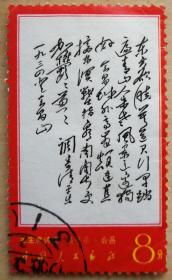 东方欲晓莫道君行早
踏遍青山人未老风景这边独
好会昌城外高峰颠连直
接东溟战士指看南粤更
加郁郁葱葱 调寄清平乐
一九三四年登会昌山
会昌
人民邮政
8分